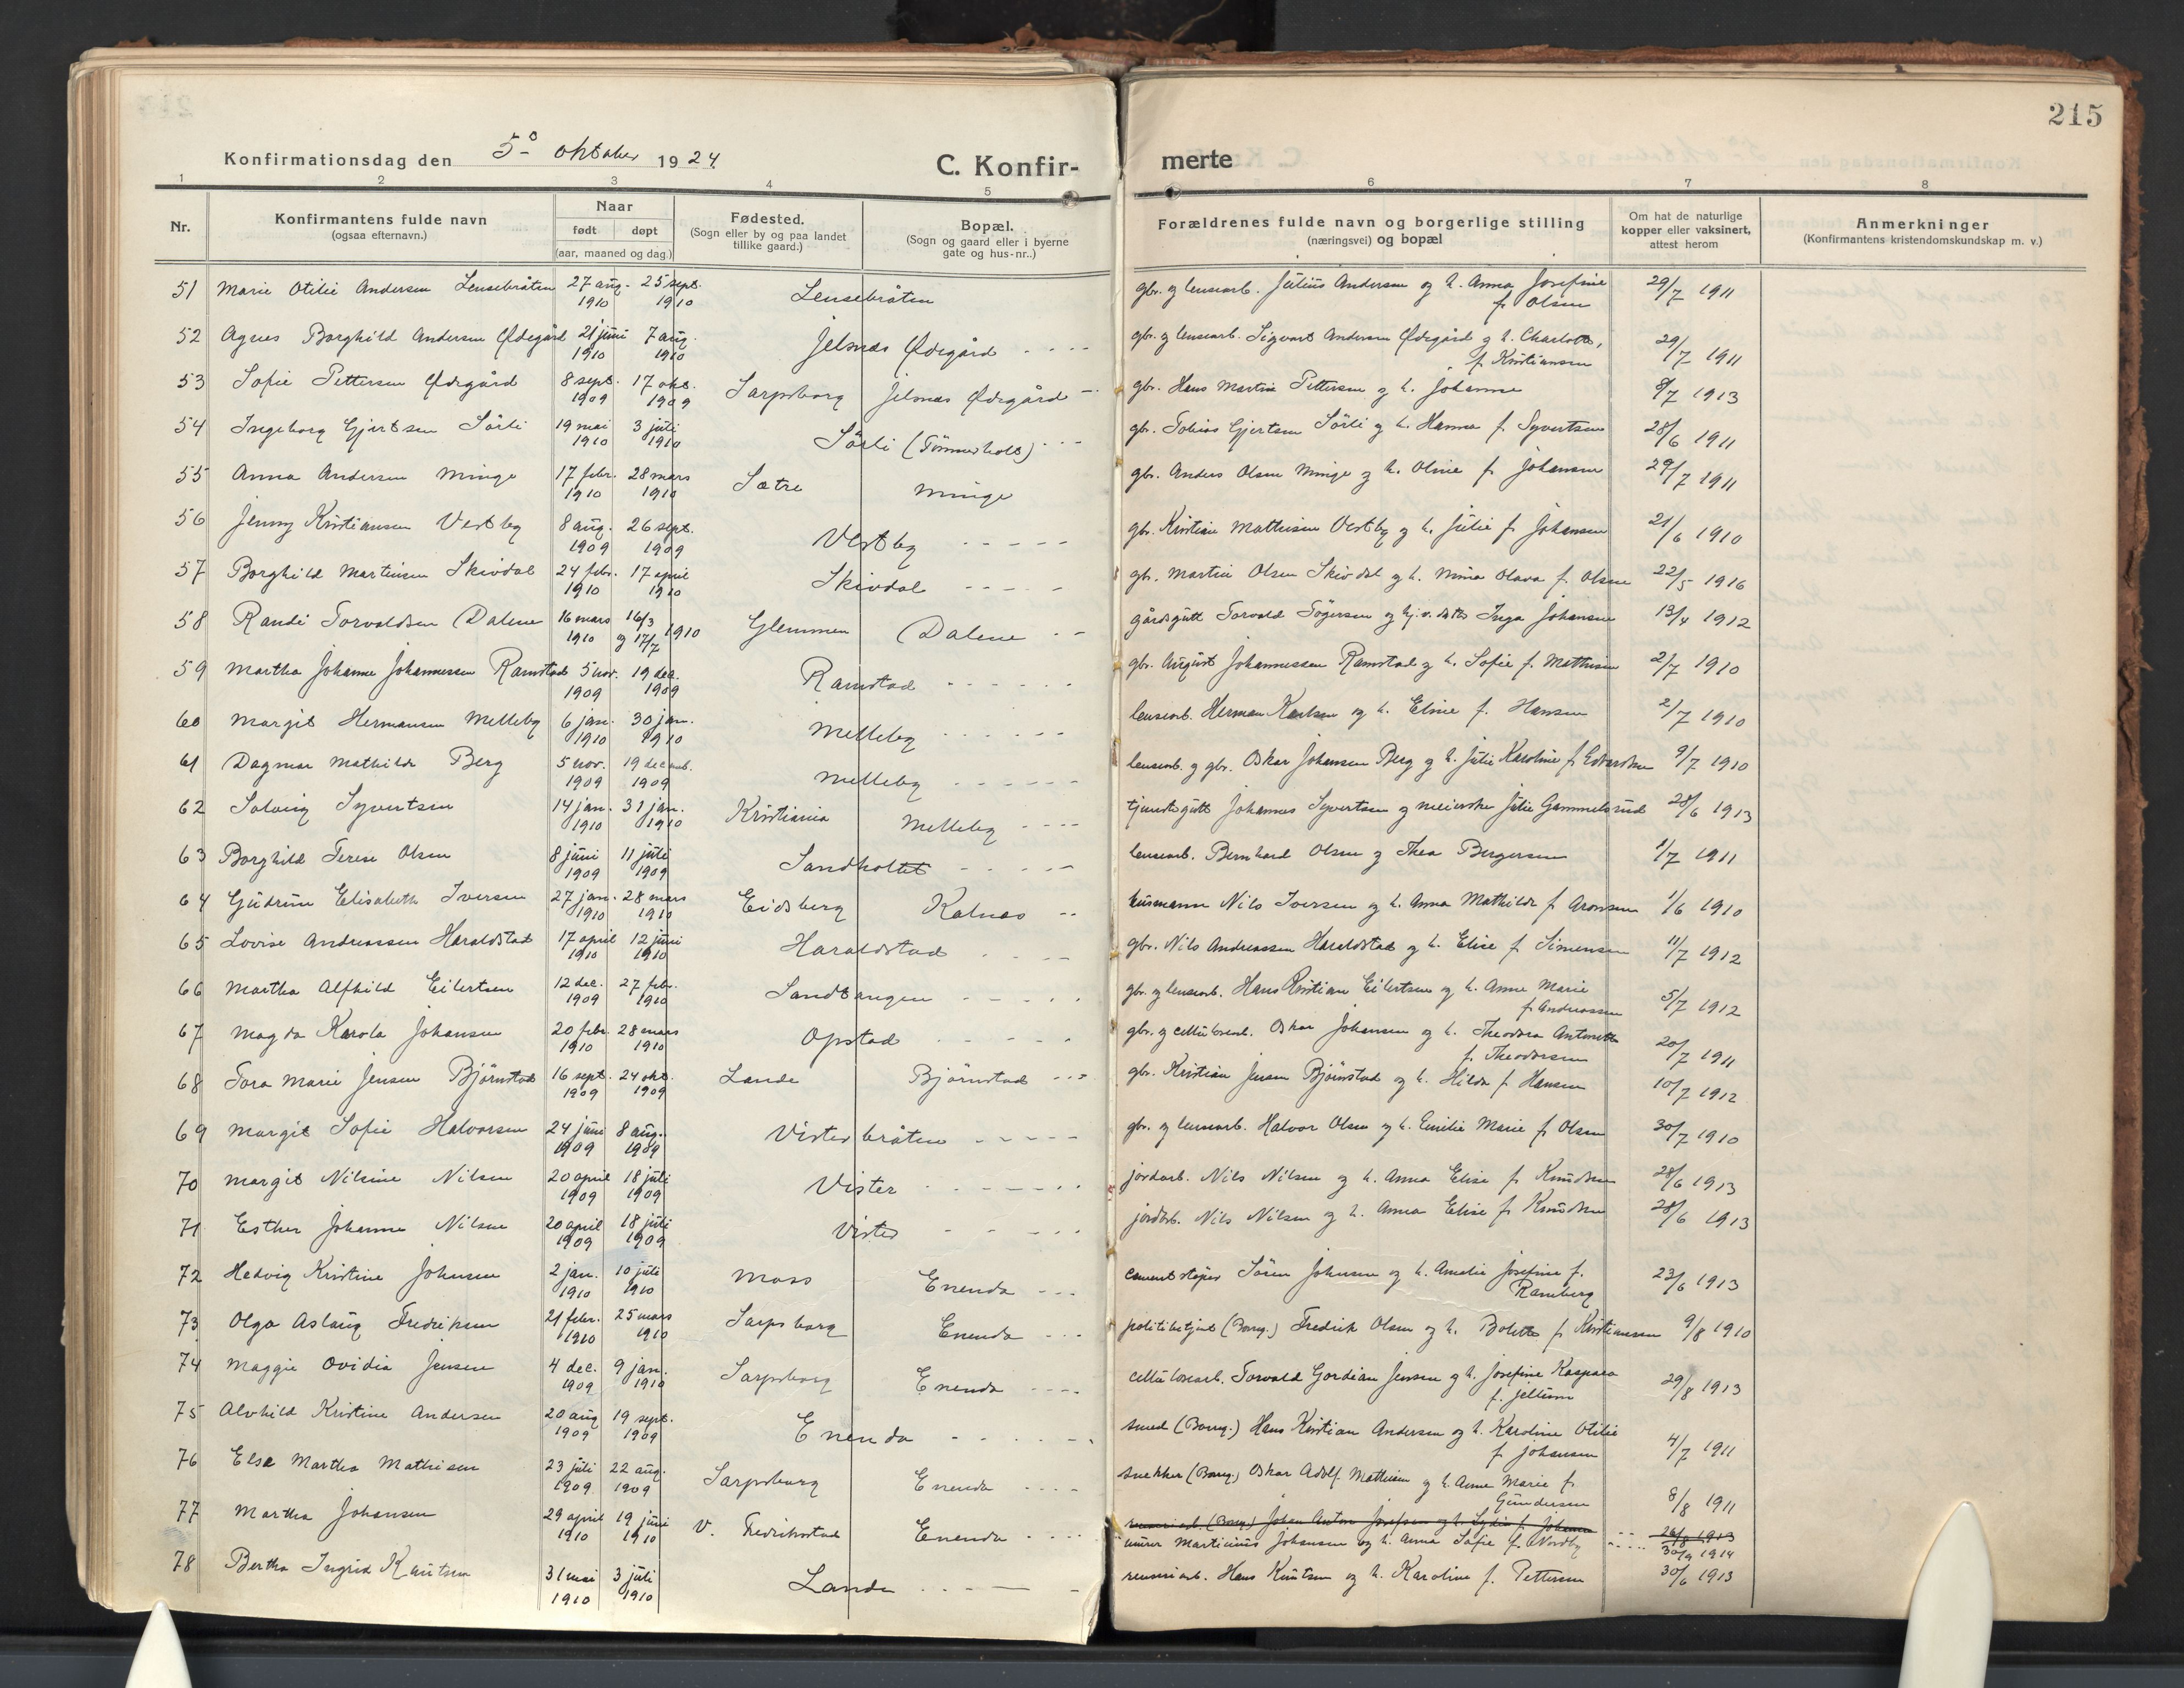 215
Konfirmationsdag den 5 oktober 1924
C. Konfir-merte
1 2 3 4 5 6 7 8
Nr. Konfirmantens fulde navn (ogsaa efternavn.) Naar født døpt (aar, maaned og dag.) Fødested. (Sogn eller by og paa landet tillike gaard.) Bopæl. (Sogn og gaard eller i byerne gate og hus-nr..) Forældrenes fulde navn og borgerlige stilling (næringsvei) og bopæl Om hat de naturlige kopper eller vaksinert, attest herom Anmerkninger (Konfirmantens kristendomskundskap m. v.)
51 Marie Otilie Andersen Lensebråten 27 aug. 1910 25 sept. 1910 Lensebråten gbr. og lensearb. Julius Andersen og h. Anna Josefine f. Olsen 29/7 1911
52 Agnes Borghild Andersen Ødegård 21 juni 1910 7 aug. 1910 Jelsnæs Ødegård gbr. og lensearb. Sigvart Andersen Ødegård og h. Charlotte, f. Kristiansen 29/7 1911
53 Sofie Pettersen Ødegård 8 sept. 1909 17 okt. 1909 Sarpsborg Jelsnæs Ødegård gbr. Hans Martin Pettersen og h. Johanne 8/7 1913
54 Ingeborg Gjertsen Sörli 19 mai 1910 3 juli 1910 Sörli (Tömmerholt) gbr. Tobias Gjertsen Sörli og h. Hanna f. Syvertsen 28/6 1911
55 Anna Andersen Minge 17 febr. 1910 28 mars 1910 Sætre Minge gbr. Anders Olsen Minge og h. Oline f. Johansen 29/7 1911
56 Jenny Kristiansen Vestby 8 aug. 1909 26 sept. 1909 Vestby gbr. Kristian Mathisen Vestby og h. Julie f. Johansen 21/6 1910
57 Borghild Martinsen Skivdal 24 febr. 1910 17 april 1910 Skivdal gbr. Martin Olsen Skivdal og h. Mina Olava f. Olsen 22/5 1916
58 Randi Torvaldsen Dalene 16 mars 1910 16/3 og 17/7 1910 Glemmen Dalene gårdsgutt Torvald Tögersen og Inga Johansen 13/4 1912
59 Martha Johanne Johannessen Ramstad 5 nov. 1909 19 dec. 1909 Ramstad gbr. August Johannessen Ramstad og h. Sofie f. Mathisen 2/7 1910
60 Margit Hermansen Melleby 6 jan. 1910 30 jan. 1910 Melleby lensearb. Herman Karlsen og h. Eline f. Hansen 2/7 1910
61 Dagmar Mathilde Berg 5 nov. 1909 19 decemb. 1909 Melleby lensearb. og gbr. Oskar Johansen Berg og h. Julie Karoline f. Edvardsen 9/7 1910
62 Solveig Syvertsen 14 jan. 1910 31 jan. 1910 Kristiania Melleby tjenestegutt Johannes Syvertsen og meierske Julie Gammelsrud 28/6 1913
63 Borghild Terese Olsen 8 juni 1909 11 juli 1909 Sandholtet lensearb. Bernhard Olsen og Thea Bergersen 1/7 1911
64 Gudrun Elisabeth Iversen 27 jan. 1910 28 mars 1910 Eidsberg Kalnæs husmann Nils Iversen og h. Anna Mathilde f. Aronsen 1/6 1910
65 Lovise Andreassen Haraldstad 17 april 1910 12 juni 1910 Haraldstad gbr. Nils Andreassen Haraldstad og h. Elise f. Simensen 11/7 1912
66 Martha Alfhild Eilertsen 12 dec. 1909 27 febr. 1910 Sandtangen gbr. og lensearb. Hans Kristian Eilertsen og h. Anne Marie f. Andreassen 5/7 1912
67 Magda Karola Johansen 20 febr. 1910 28 mars 1910 Opstad gbr. og cellulosearb. Oskar Johansen og h. Theodora Antonette f. Theodorsen 20/7 1911
68 Tora Marie Jensen Björnstad 16 sept. 1909 24 okt. 1909 Lande Björnstad gbr. Kristian Jensen Björnstad og h. Hilda f. Hansen 10/7 1912
69 Margit Sofie Halvorsen 24 juni 1909 8 aug. 1909 Visterbråten gbr. og lensearb. Halvor Olsen og h. Emilie Marie f. Olsen 30/7 1910
70 Margit Nilsine Nilsen 20 april 1909 18 juli 1909 Vister jordarb. Nils Nilsen og h. Anna Elise f. Knudsen 28/6 1913
71 Esther Johanne Nilsen 20 april 1909 18 juli 1909 Vister jordarb. Nils Nilsen og h. Anna Elise f. Knudsen 28/6 1913
72 Hedvig Kristine Johnsen 2 jan. 1910 10 juli 1910 Moss Enenda cementstöper Sören Johnsen og h. Amalie Josefine f. Ramberg 23/6 1913
73 Olga Aslaug Fredriksen 21 febr. 1910 25 mars 1910 Sarpsborg Enenda politibetjent (Borreg.) Fredrik Olsen og h. Bolette f. Kristiansen 9/8 1910
74 Maggie Ovidia Jensen 4 dec. 1909 9 jan. 1910 Sarpsborg Enenda cellulosearb. Torvald Gordian Jensen og h. Josefine Kaspara f. Jellum 29/8 1913
75 Alvhild Kristine Andersen 20 aug 1909 19 sept. 1909 Enenda smed (Borreg.) Hans Kristian Andersen og h. Karoline Otilie f. Johansen 4/7 1911
76 Else Martha Mathisen 23 juli 1909 22 aug. 1909 Sarpsborg Enenda snekker (Borreg.) Oskar Adolf Mathisen og h. Anne Marie f. Gundersen 8/8 1911
77 Martha Johansen 29 april 1910 19 juni 1910 V. Fredrikstad Enenda renseriarb. (Borreg.) Johan Anton Josefsen og h. Lydia f. Johansen 26/8 1913
murer Martinius Johansen og h. Anna Sofie f. Nordby 30/9 1914
78 Bertha Ingrid Knutsen 31 mai 1910 3 juli 1910 Lande renseriarb. Hans Knutsen og h. Karoline f. Pettersen 30/6 1913